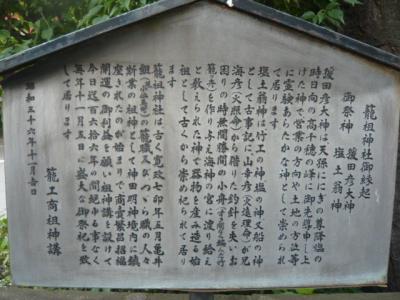 籠祖神社御縁起
御祭神 猿田彦大神
塩土翁神
猿田彦大神は天孫ににぎの尊降臨の
時日向の高千穂の峰に御先導申し上
げた神で営業の方向や土地の方位等
に霊験あらたかな神として崇められ
塩土翁神は竹工の神塩の神又船の神
として古事記に山幸彦(火遠理命)が兄
海彦(火照命)から借りた釣針を失いお
困りの時無間勝間の小舟
を作り与え海神の宮に渡り給え
と教えられた神で籠物を産み造る始
祖として古くから崇め祀られて居り
ます
籠祖神社は古く寛政七卯年五月亀井
組の籠職及びつづら職の人々
断業の祖神として神田明神境内に鎮
座されたのが始まりで商売繁昌招福
開運の御利益を願い祖神講を設けて
今日迄百六拾六年の間絶ゆる事なく
毎年十一月五日に盛大な御祭祀を致
して居ります
昭和三十六年十一月吉日
籠工商祖神講